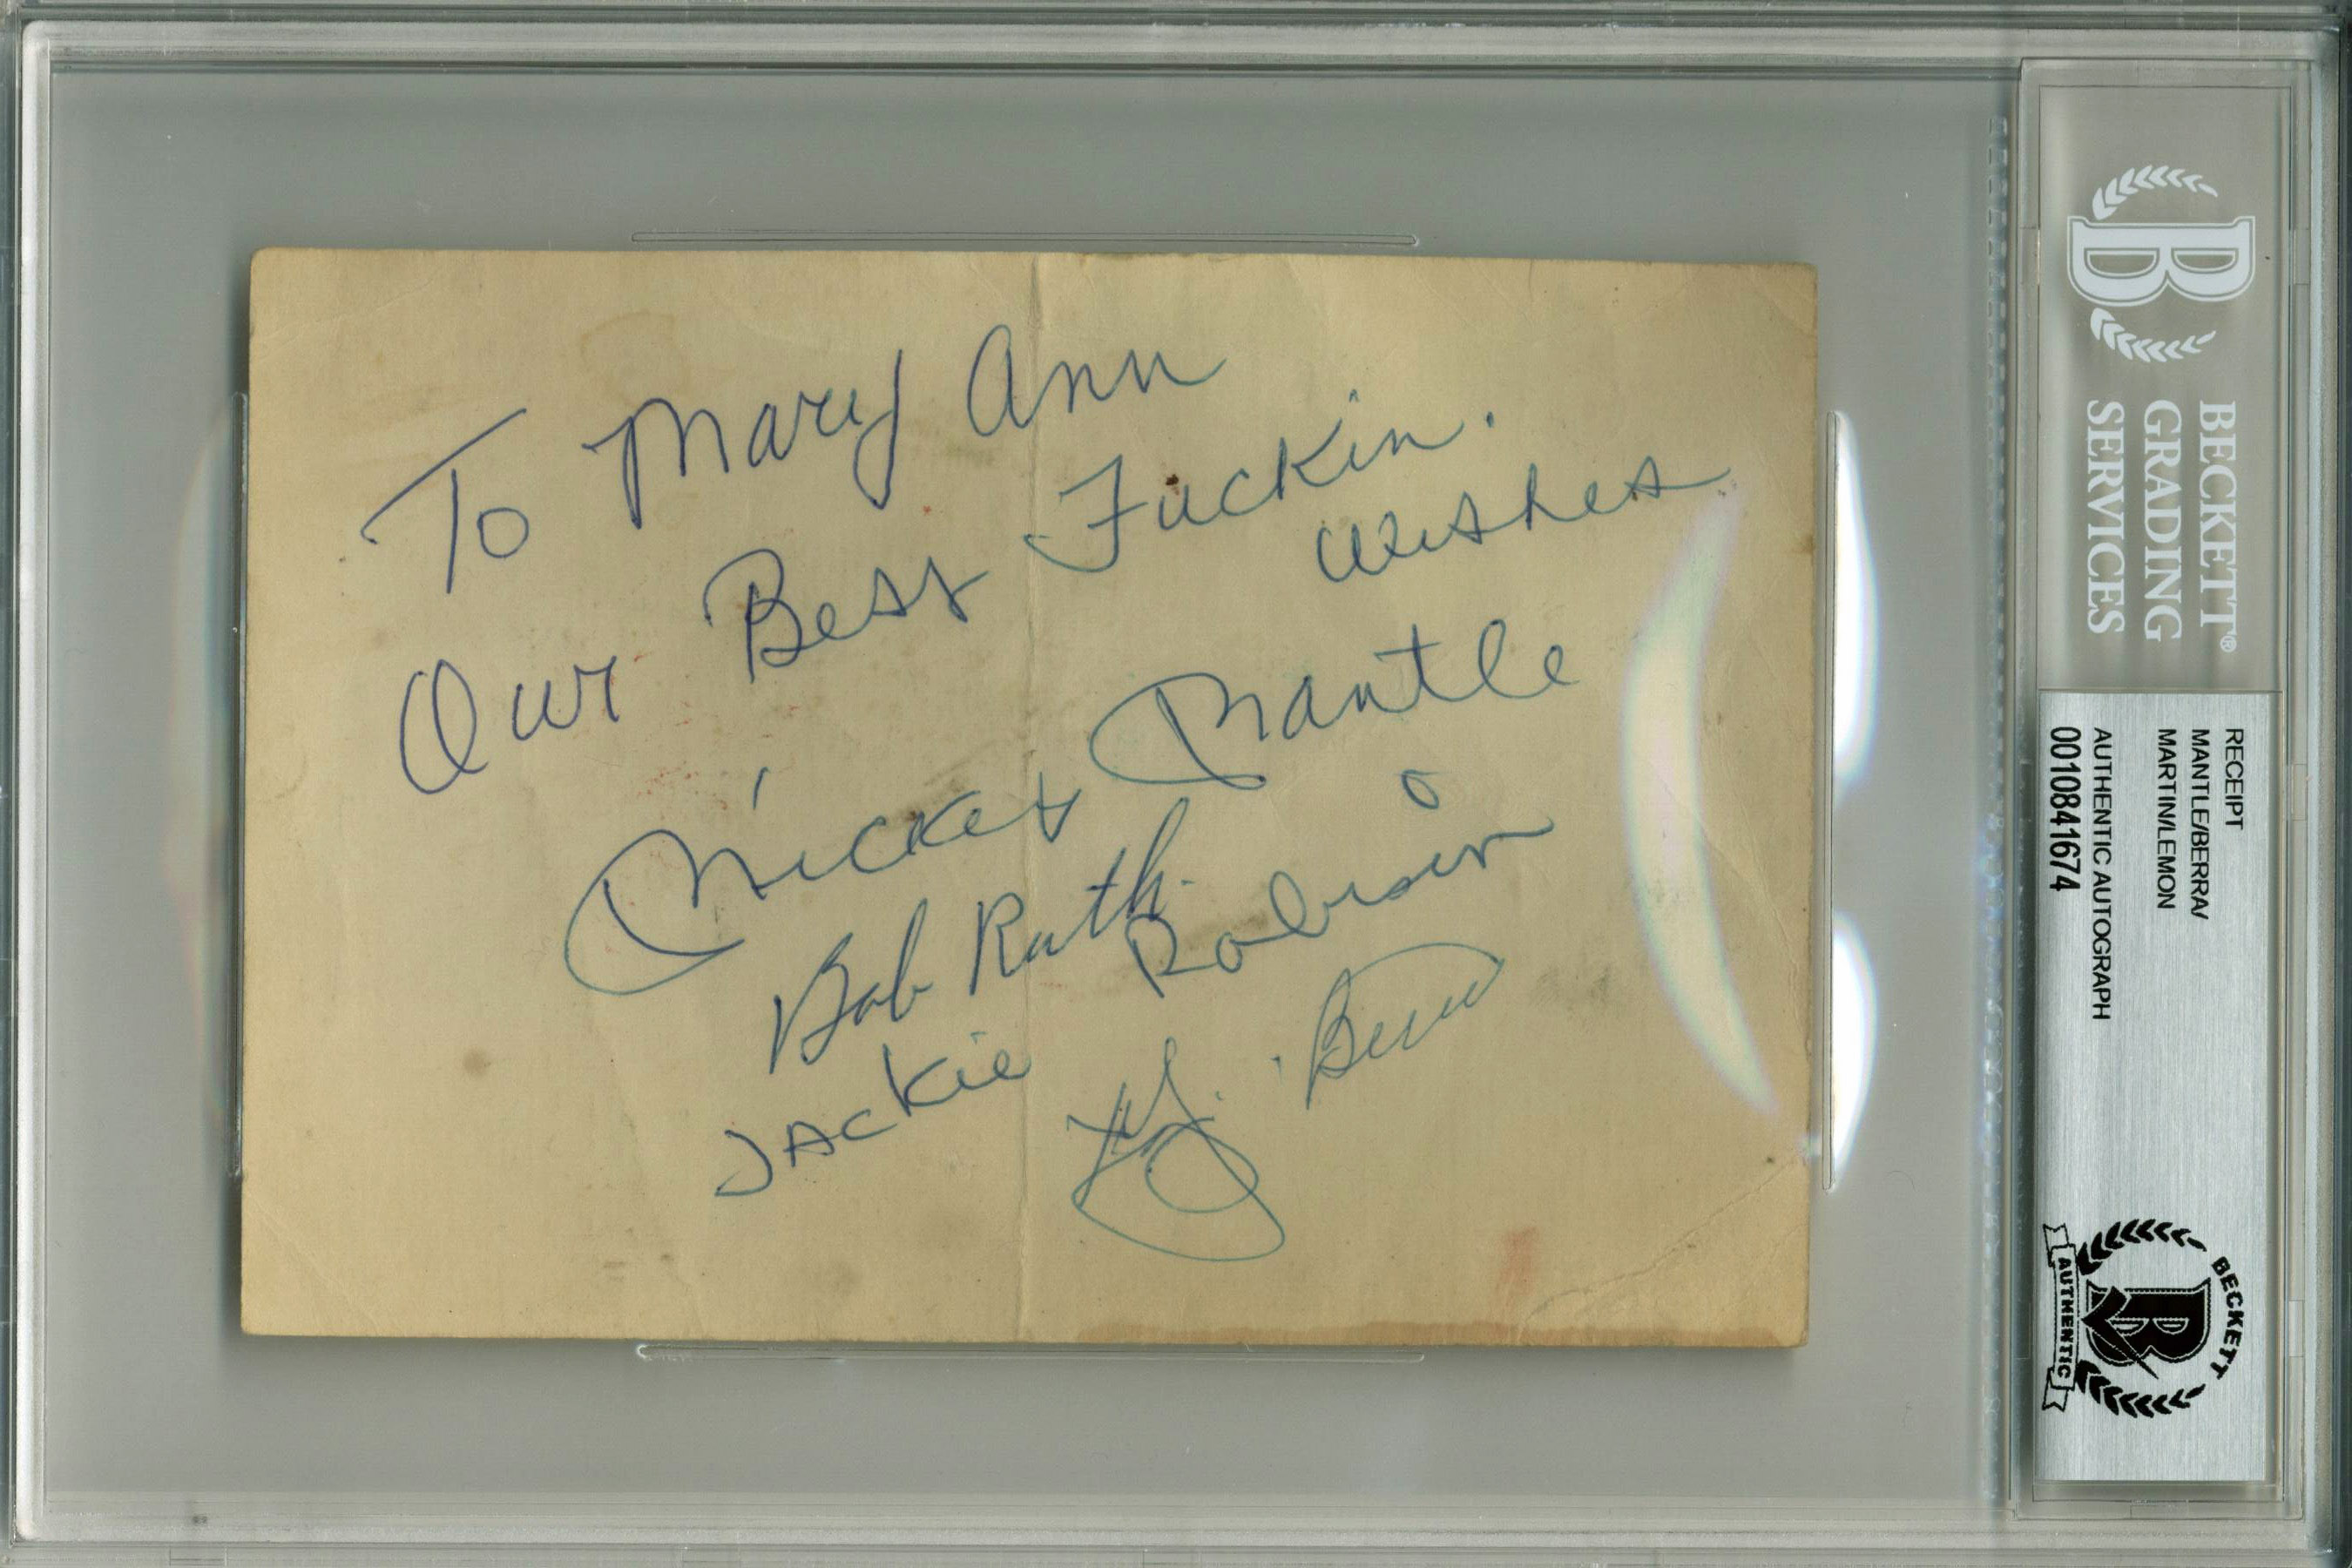 To Mary Ann
Our Best Fuckin.
wishes
Mickey Mantle
Bob Ruth.
JACKie Robinson
Yogi Berra
BECKETT®
GRADING
SERVICES
RECEIPT
MANTLE/BERRA/
MARTIN/LEMON
AUTHENTIC AUTOGRAPH
0010841674
BECKETT
B
AUTHENTIC